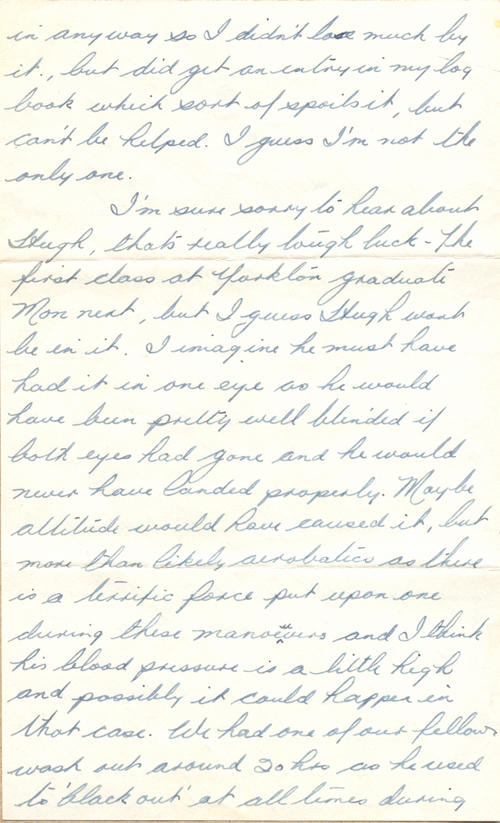 in anyway so I didn't lose much by
it., but did get an entry in my log
book which sort of spoils it, but
can't be helped. I guess I'm not the
only one.
I'm sure sorry to hear about
Hugh, thats really tough luck - The
first class at Yorkton graduate
Mon next, but I guess Hugh wont
be in it. I imagine he must have
had it in one eye as he would
have been pretty well blinded if
both eyes had gone and he would
never have landed properly. Maybe
altitude would have caused it, but
more than likely aerobatics as there
is a terrific force put upon one
during these manoeuvers and I think
his blood pressure is a little high
and possibly it could happen in
that case. We had one of our fellows
wash out around 20 hrs as he used
to 'black out' at all times during